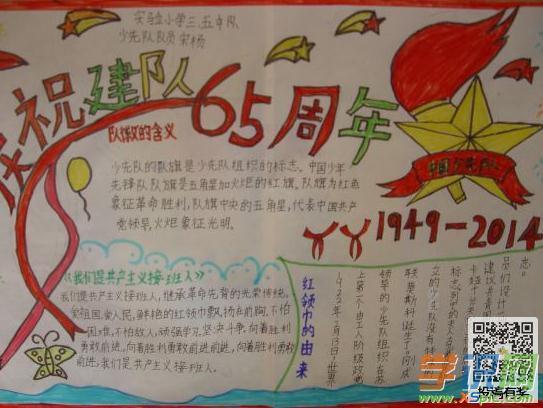 实验小学三.五中队
少先队队员宋杨
庆祝建队65周年
队徽的含义
少先队的队旗是少先队组织的标志。中国少年
先锋队队旗是五角星加火炬的红旗。队旗为红色
象征革命胜利,队旗中央的五角星,代表中国共产
党领导,火炬象征光明。
中国少先队
1949-2014
《我们是共产主义接班人》
我们是共产主义接班人,继承革命先辈的光荣传统,
爱祖国,爱人民,鲜艳的红领巾飘扬在前胸,不怕
困难,不怕敌人,顽强学习,坚决斗争,向着胜利
勇敢前进,向着胜利勇敢前进前进,向着胜利勇敢
前进,我们是共产主义接班人。
红领巾的由来
1922年2月13日,世界
上第一个由工人阶级政党
领导的少先队组织在苏
联莫斯科诞生了。
志。
学科网
投稿有奖